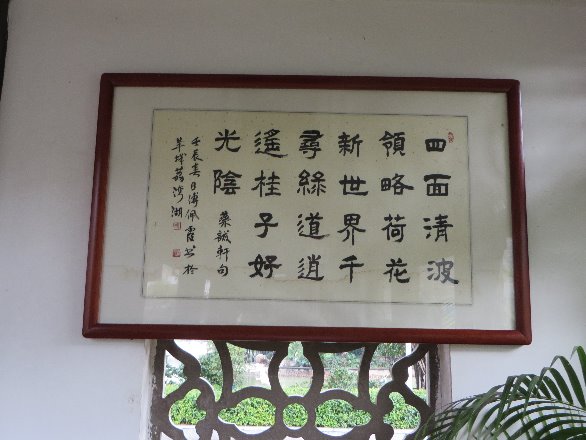 四面清波
領略荷花
新世界千
尋綠道逍
遙桂子好
光陰
葉誠軒句
壬辰春日傅佩霞書於
羊城荔灣湖